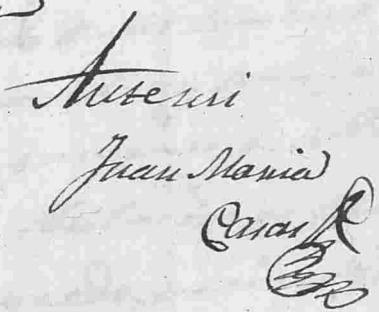 Ante mi
Juan Maria
Casas